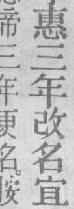 惠三年改名宜
帝三年更名。按